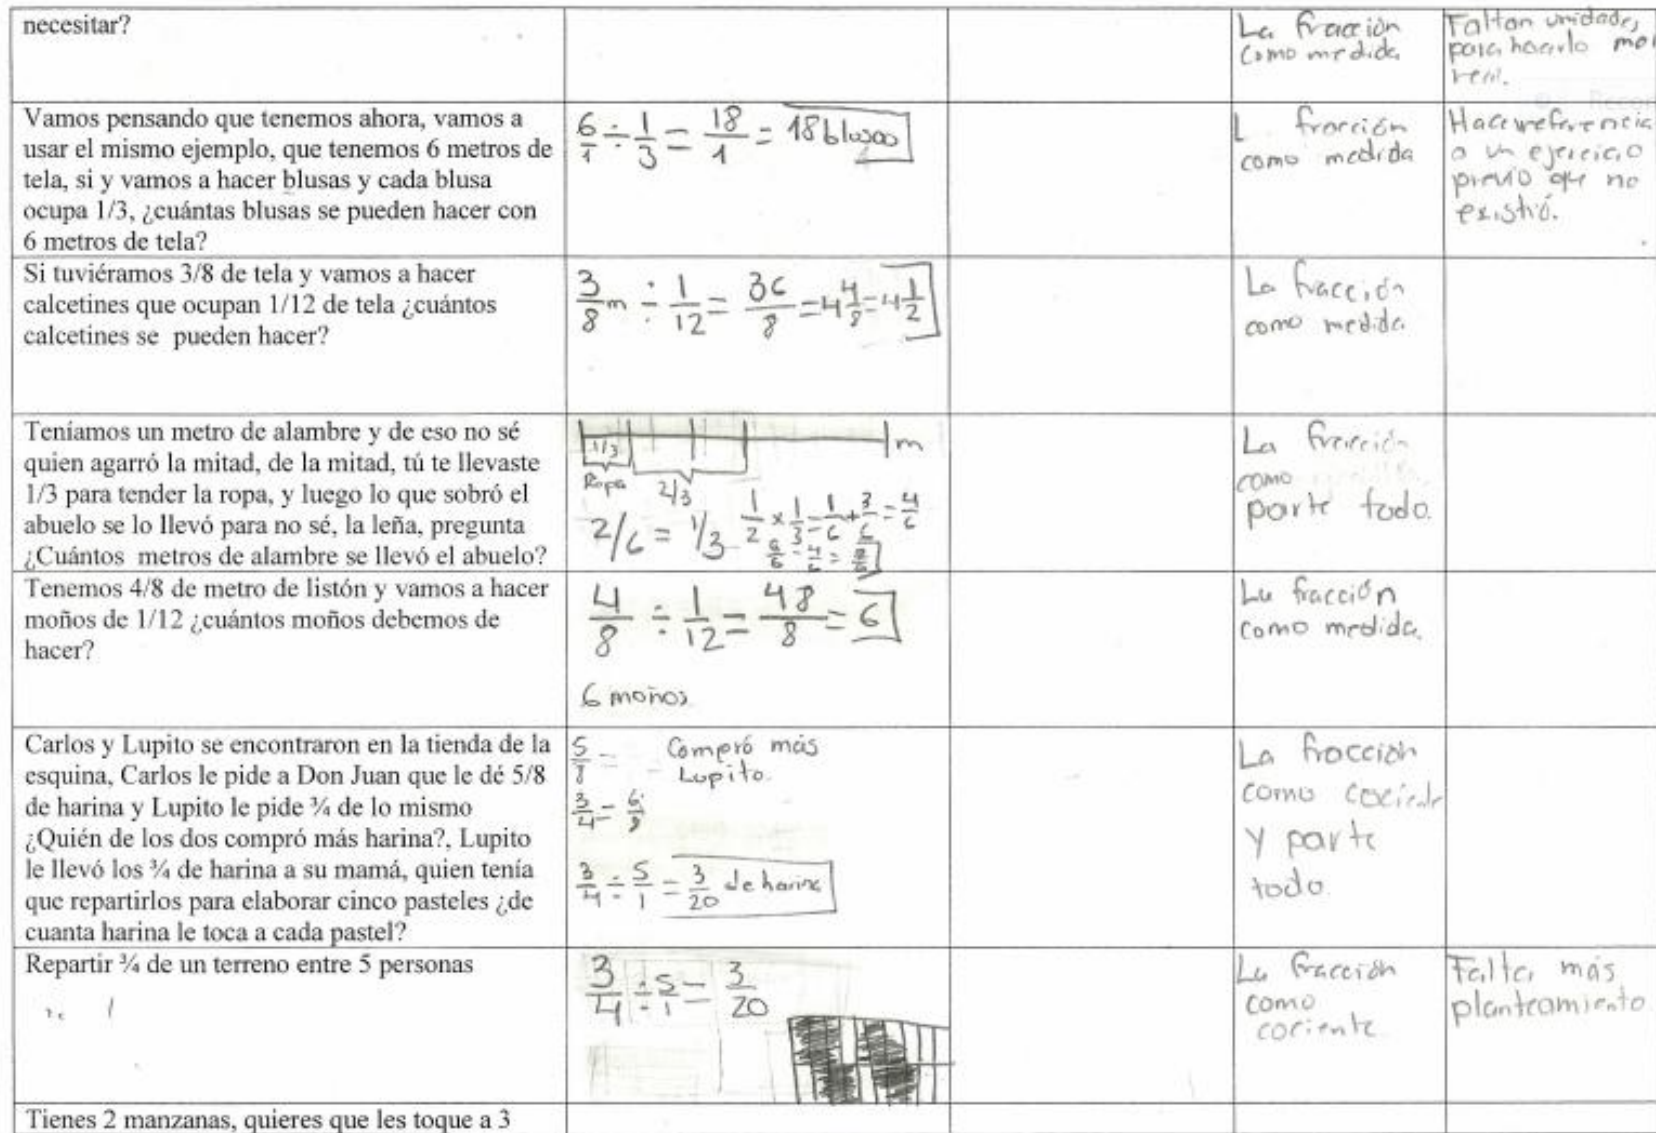 necesitar?
La fracción
como medida
Faltan unidades
para hacerlo
real.
Vamos pensando que tenemos ahora, vamos a
usar el mismo ejemplo, que tenemos 6 metros de
tela, si y vamos a hacer blusas y cada blusa
ocupa 1/3, ¿cuántas blusas se pueden hacer con
6 metros de tela?
6/1 ÷ 1/3 = 18/1 = 18 blusas
L fracción
como medida
Hace referencia
a un ejercicio
previo que no
existió.
Si tuviéramos 3/8 de tela y vamos a hacer
calcetines que ocupan 1/12 de tela ¿cuántos
calcetines se pueden hacer?
3/8 m ÷ 1/12 = 36/8 = 4 4/8 = 4 1/2
La fracción
como medida
Teníamos un metro de alambre y de eso no sé
quien agarró la mitad, de la mitad, tú te llevaste
1/3 para tender la ropa, y luego lo que sobró el
abuelo se lo llevó para no sé, la leña, pregunta
¿Cuántos metros de alambre se llevó el abuelo?
1/3 m
Ropa 2/3
2/6 = 1/3 1/2 x 1/3 = 1/6 + 3/6 = 4/6
6/6 - 4/6 = 2/6
La fracción
como
parte todo.
Tenemos 4/8 de metro de listón y vamos a hacer
moños de 1/12 ¿cuántos moños debemos de
hacer?
4/8 ÷ 1/12 = 48/8 = 6
6 moños
La fracción
como medida.
Carlos y Lupito se encontraron en la tienda de la
esquina, Carlos le pide a Don Juan que le dé 5/8
de harina y Lupito le pide ¾ de lo mismo
¿Quién de los dos compró más harina?, Lupito
le llevó los ¾ de harina a su mamá, quien tenía
que repartirlos para elaborar cinco pasteles ¿de
cuanta harina le toca a cada pastel?
5/8 = Compró más
Lupito.
3/4 = 6/8
3/4 ÷ 5/1 = 3/20 de harina
La fracción
como cociente
y parte
todo.
Repartir ¾ de un terreno entre 5 personas
3/4 ÷ 5/1 = 3/20
La fracción
como
cociente
Falta más
planteamiento
Tienes 2 manzanas, quieres que les toque a 3